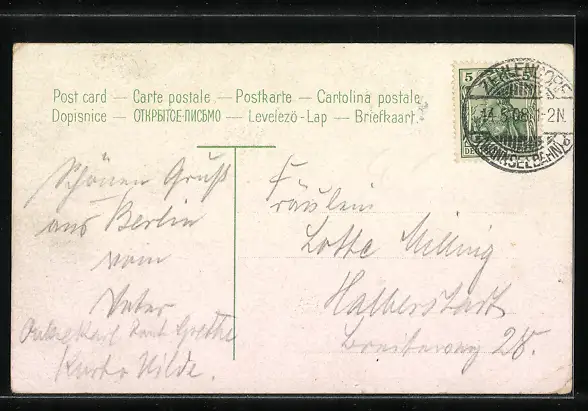 Post card — Carte postale — Postkarte — Cartolina postale
Dopisnice — ОТКРЫТОЕ-ПИСЬМО — Levelező-Lap — Briefkaart.
5
ZEHLENDORF
14.5.08. 1-2N.
(WANNSEEBAHN)
Schönen Gruß
aus Berlin
vom
Vater
Onkel Karl Tant Grethe
Kurt u Hilde.
Fräulein
Lotte Milling
Halberstadt
Breiteweg 28.